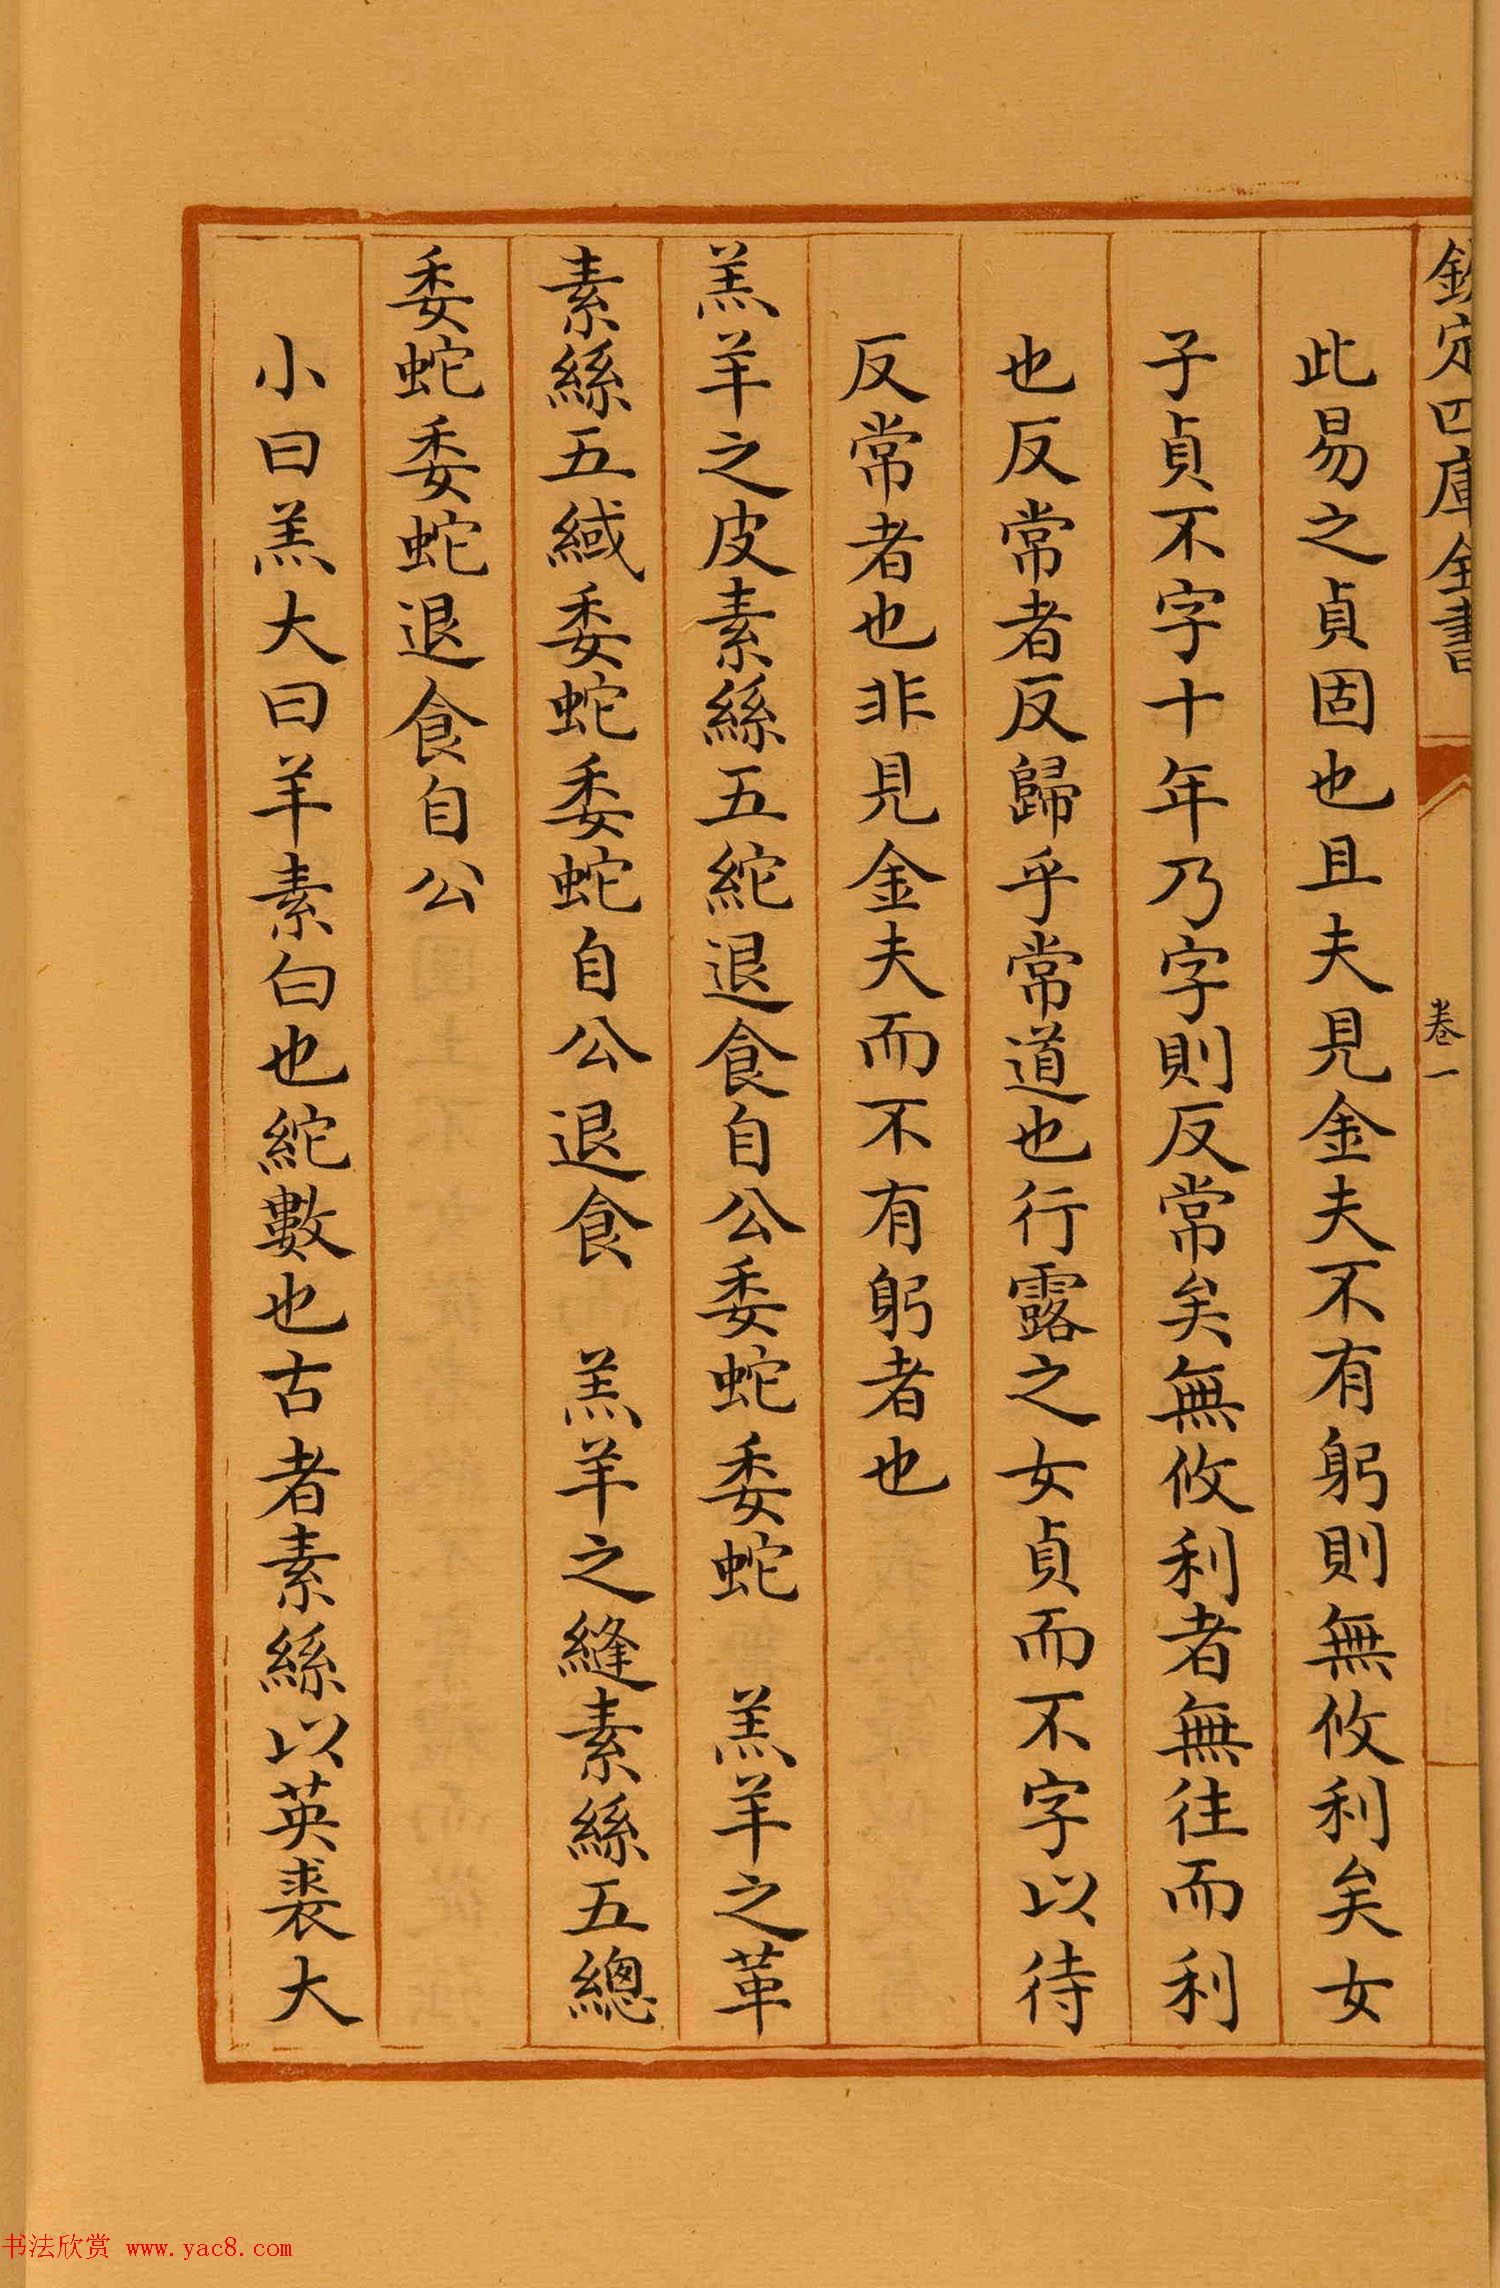 欽定四庫全書
卷一
此易之貞固也且夫見金夫不有躬則無攸利矣女
子貞不字十年乃字則反常矣無攸利者無往而利
也反常者反歸乎常道也行露之女貞而不字以待
反常者也非見金夫而不有躬者也
羔羊之皮素絲五紽退食自公委蛇委蛇　羔羊之革
素絲五緎委蛇委蛇自公退食　羔羊之縫素絲五總
委蛇委蛇退食自公
小曰羔大曰羊素白也紽數也古者素絲以英裘大
书法欣赏 www.yac8.com